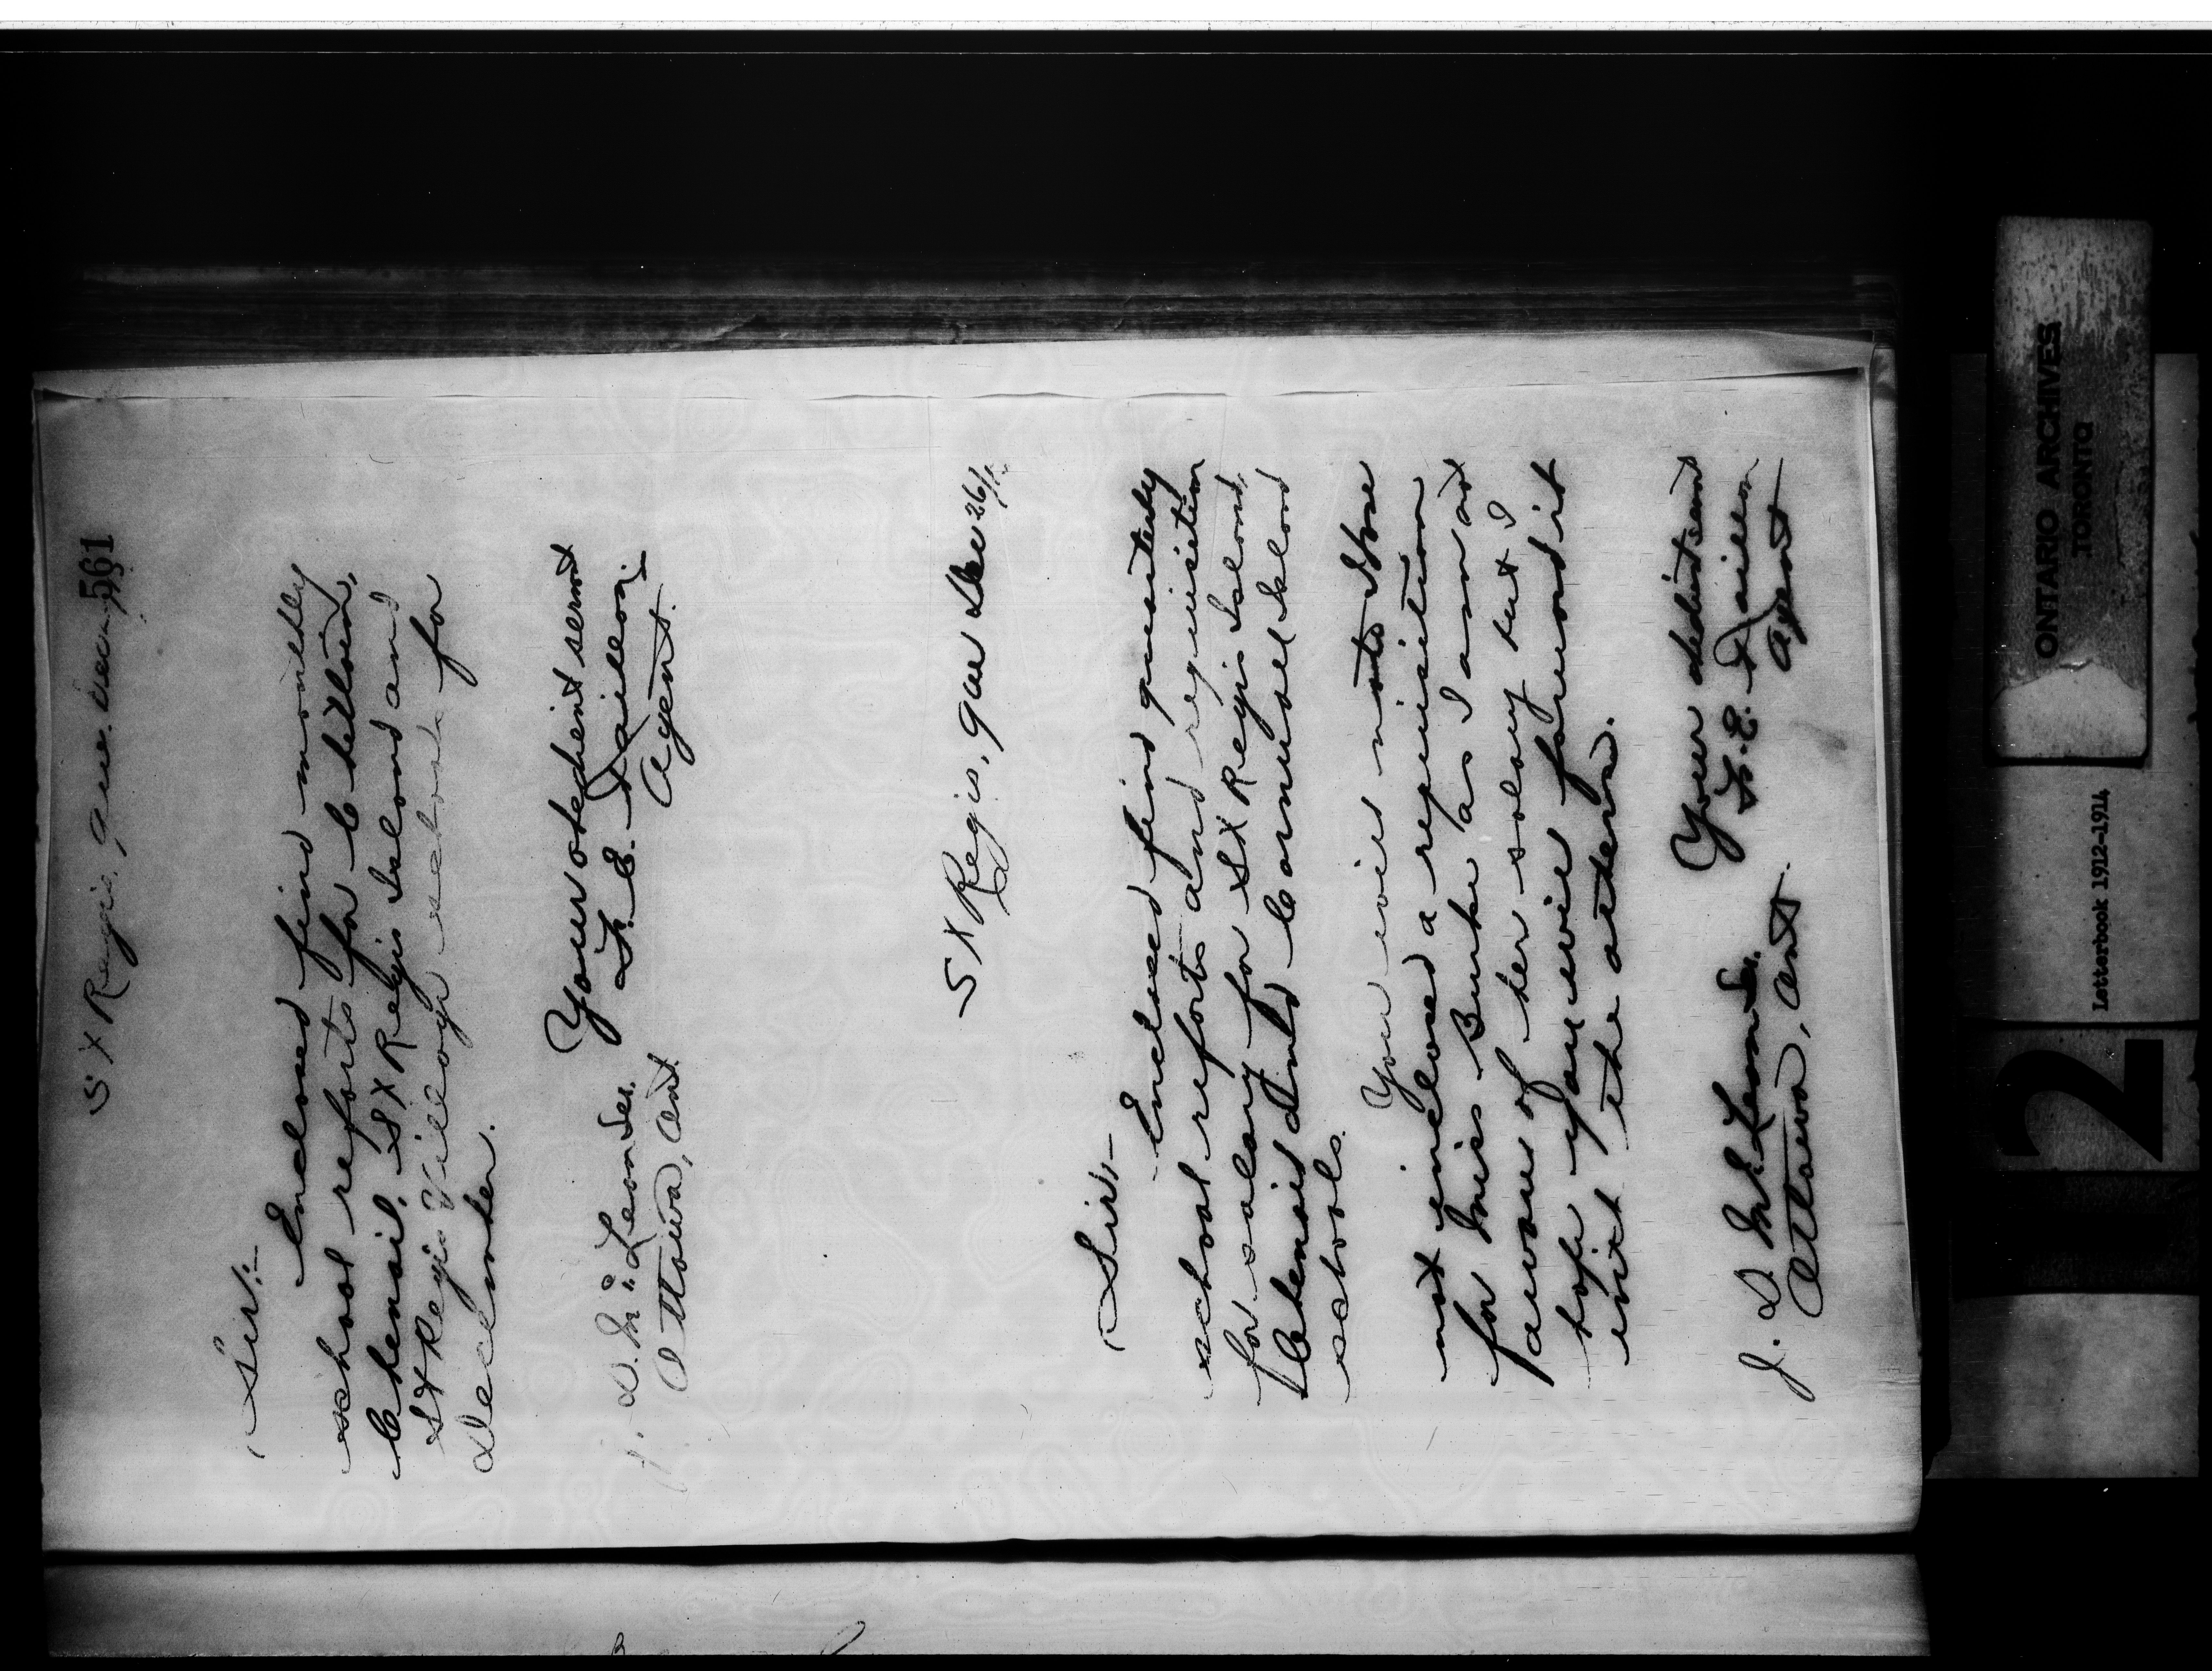 561
St Regis, Que. Dec
Sir:-
Enclosed find monthly
school reports for
Chenail, St Regis Island and
St Regis Village schools for
December.
Your obedient servant
F. E. Taillon
Agent.
J. D. McLean Sec.
Ottawa, Ont
St Regis, Que Dec 26/12
Sir:-
Enclosed find quarterly
school reports and requisition
for salary for St Regis Island,
Chenail and Cornwall Island
schools.
You will note I have
not inclosed a requisition
for Miss Burke as I am not
aware of her salary but I
hope you will forward it
with the others.
Your obedient servant
F. E. Taillon
Agent
J. D. McLean Sec.
Ottawa, Ont.
ONTARIO ARCHIVES
TORONTO
Letterbook 1912-1914
2